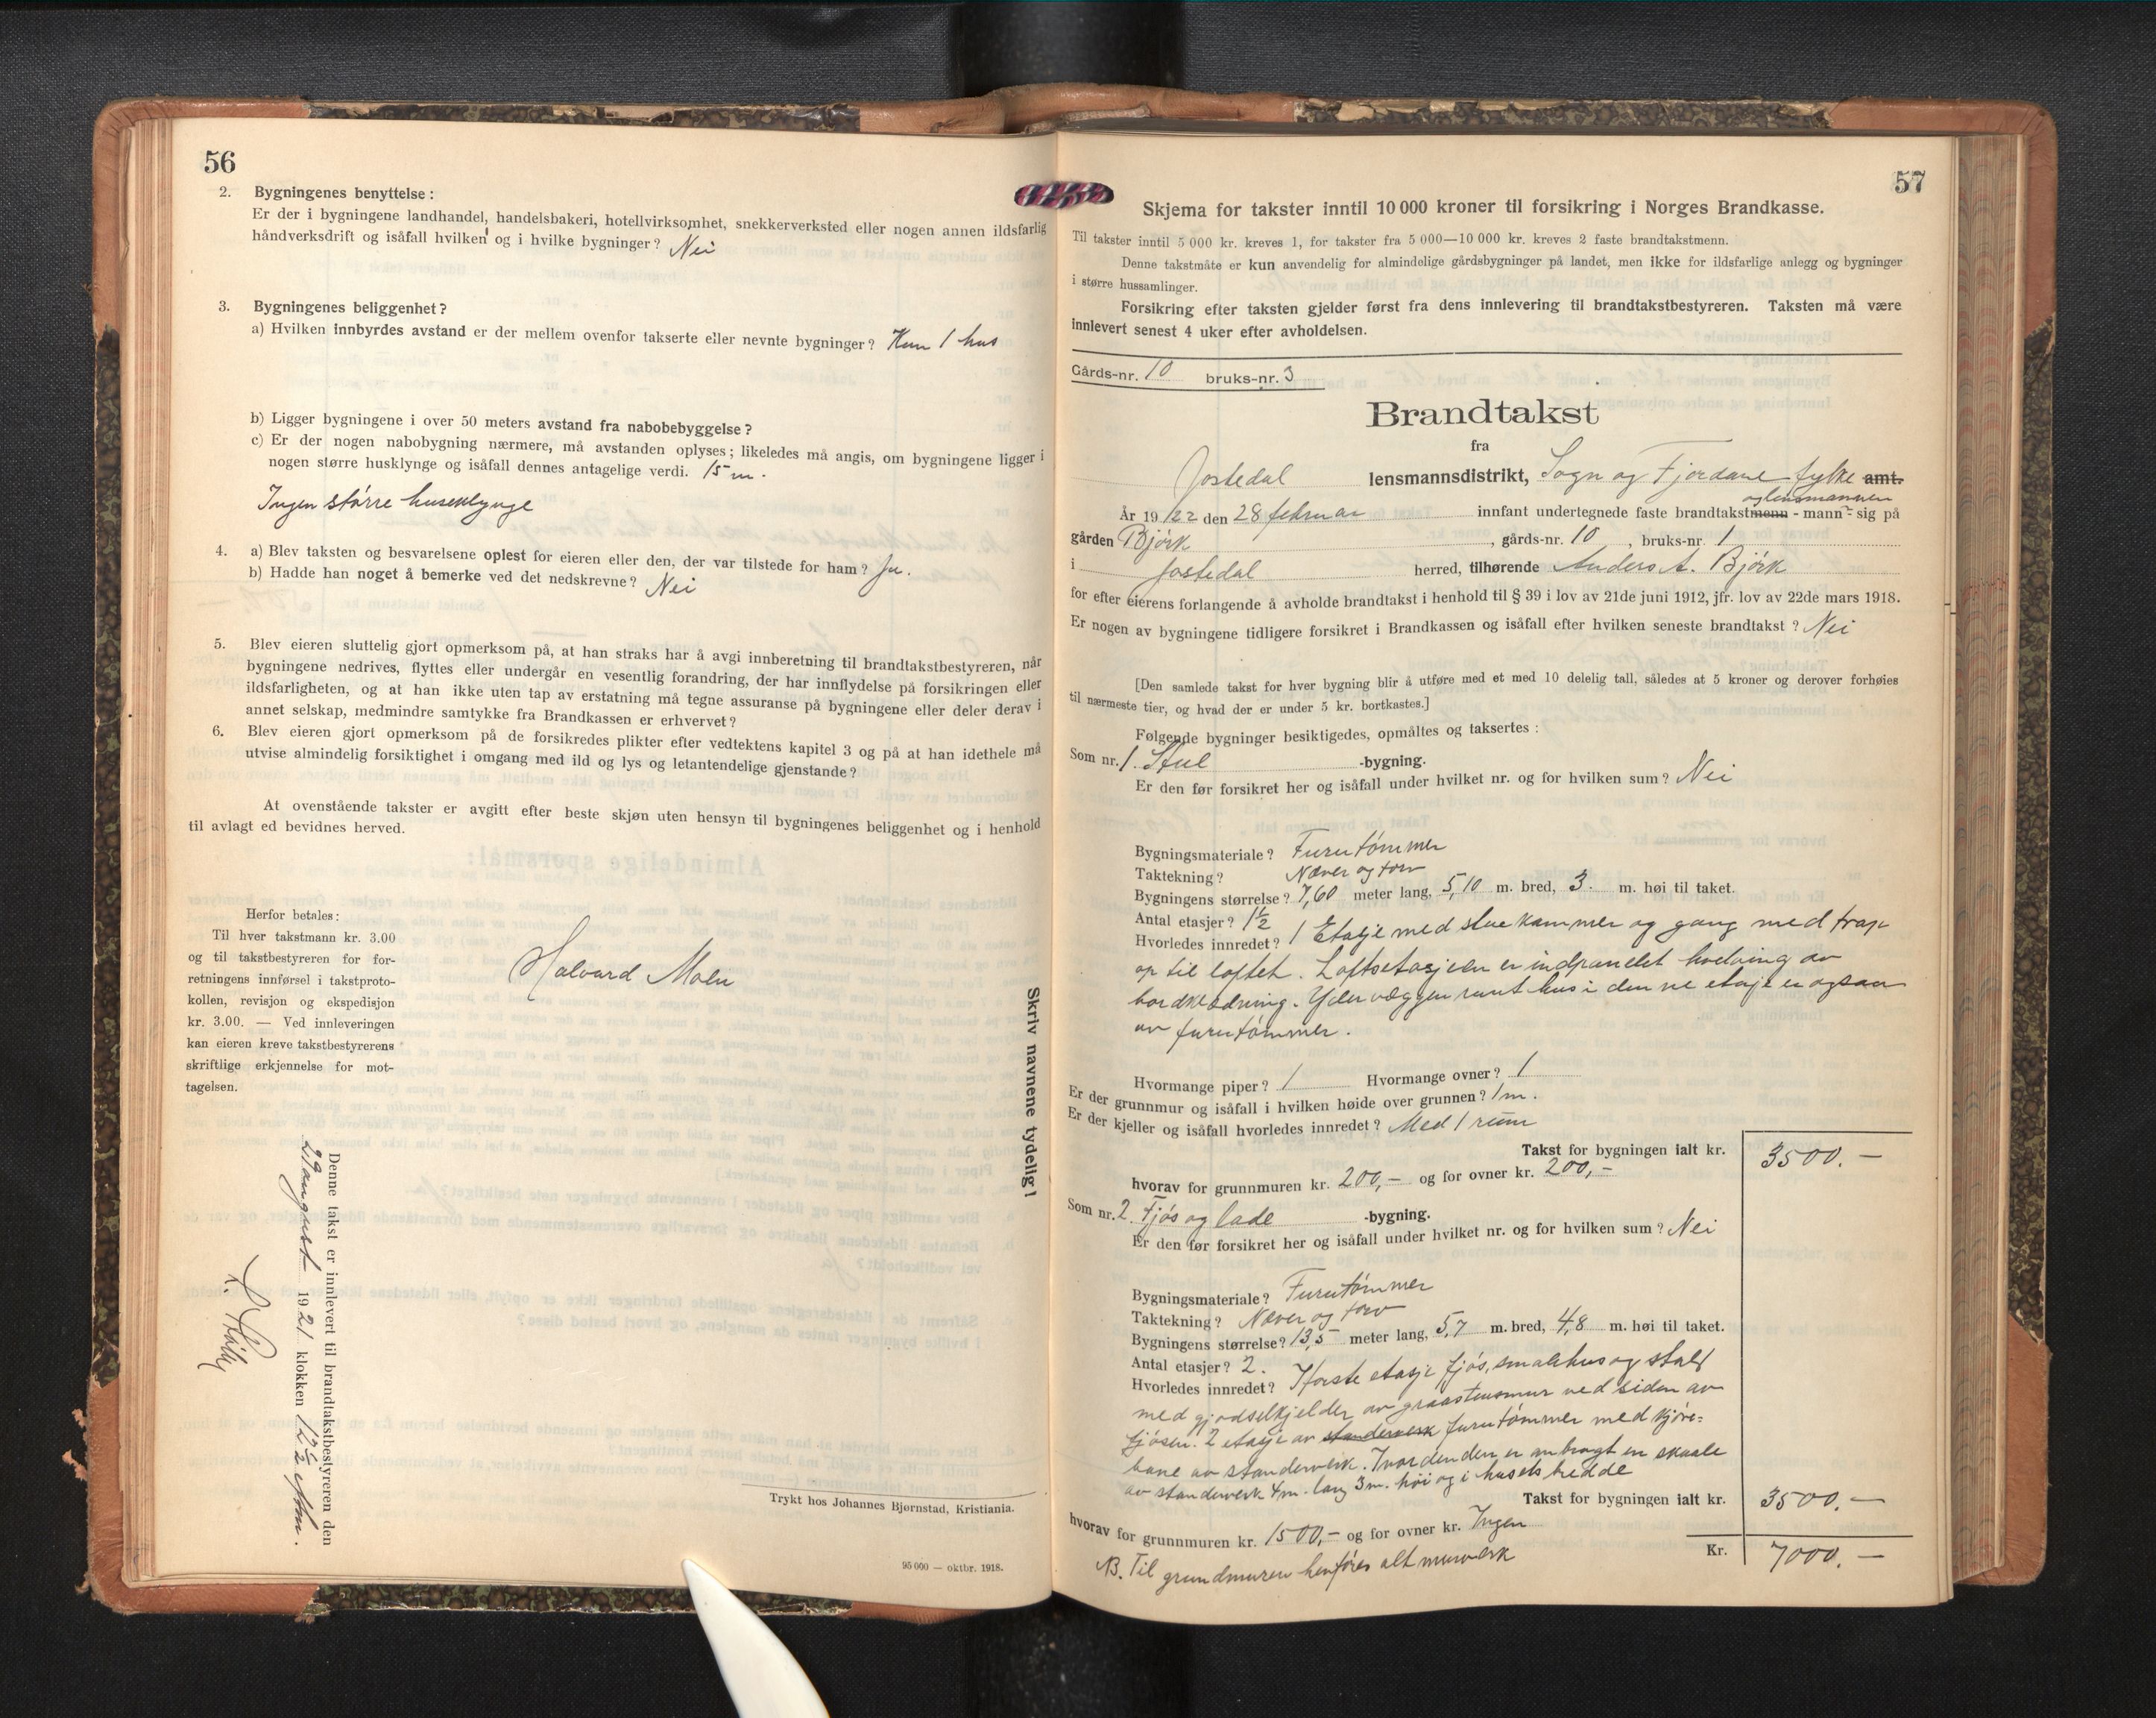 56
2. Bygningenes benyttelse:
Er der i bygningene landhandel, handelsbakeri, hotellvirksomhet, snekkerverksted eller nogen annen ildsfarlig
håndverksdrift og isåfall hvilken og i hvilke bygninger? Nei
3. Bygningenes beliggenhet?
a) Hvilken innbyrdes avstand er der mellem ovenfor takserte eller nevnte bygninger? Kun 1 hus
b) Ligger bygningene i over 50 meters avstand fra nabobebyggelse?
c) Er der nogen nabobygning nærmere, må avstanden oplyses; likeledes må angis, om bygningene ligger i
nogen større husklynge og isåfall dennes antagelige verdi. 15 m.
Ingen større huseklynge
4. a) Blev taksten og besvarelsene oplest for eieren eller den, der var tilstede for ham? Ja.
b) Hadde han noget å bemerke ved det nedskrevne? Nei
5. Blev eieren sluttelig gjort opmerksom på, at han straks har å avgi innberetning til brandtakstbestyreren, når
bygningene nedrives, flyttes eller undergår en vesentlig forandring, der har innflydelse på forsikringen eller
ildsfarligheten, og at han ikke uten tap av erstatning må tegne assuranse på bygningene eller deler derav i
annet selskap, medmindre samtykke fra Brandkassen er erhvervet?
6. Blev eieren gjort opmerksom på de forsikredes plikter efter vedtektens kapitel 3 og på at han idethele må
utvise almindelig forsiktighet i omgang med ild og lys og letantendelige gjenstande?
At ovenstående takster er avgitt efter beste skjøn uten hensyn til bygningenes beliggenhet og i henhold
til avlagt ed bevidnes herved.
Herfor betales:
Til hver takstmann kr. 3.00
og til takstbestyreren for for-
retningens innførsel i takstproto-
kollen, revisjon og ekspedisjon
kr. 3.00. — Ved innleveringen
kan eieren kreve takstbestyrerens
skriftlige erkjennelse for mot-
tagelsen.
Halvard Molu
Skriv navnene tydelig!
Denne takst er innlevert til brandtakstbestyreren den
29 august 1921 klokken 12½ eftm.
Trykt hos Johannes Bjørnstad, Kristiania.
95 000 — oktbr. 1918.
57
Skjema for takster inntil 10 000 kroner til forsikring i Norges Brandkasse.
Til takster inntil 5 000 kr. kreves 1, for takster fra 5 000—10 000 kr. kreves 2 faste brandtakstmenn.
Denne takstmåte er kun anvendelig for almindelige gårdsbygninger på landet, men ikke for ildsfarlige anlegg og bygninger
i større hussamlinger.
Forsikring efter taksten gjelder først fra dens innlevering til brandtakstbestyreren. Taksten må være
innlevert senest 4 uker efter avholdelsen.
Gårds-nr. 10 bruks-nr. 3
Brandtakst
fra
Jostedal lensmannsdistrikt, Sogn og Fjordane fylke amt.
og lensmannen
År 1922 den 28 februar innfant undertegnede faste brandtakstmenn - mann - sig på
gården Bjørk, gårds-nr. 10, bruks-nr. 1
i Jostedal herred, tilhørende Anders A. Bjørk
for efter eierens forlangende å avholde brandtakst i henhold til § 39 i lov av 21de juni 1912, jfr. lov av 22de mars 1918.
Er nogen av bygningene tidligere forsikret i Brandkassen og isåfall efter hvilken seneste brandtakst? Nei
[Den samlede takst for hver bygning blir å utføre med et med 10 delelig tall, således at 5 kroner og derover forhøies
til nærmeste tier, og hvad der er under 5 kr. bortkastes.]
Følgende bygninger besiktigedes, opmåltes og taksertes:
Som nr. 1. Stue -bygning.
Er den før forsikret her og isåfall under hvilket nr. og for hvilken sum? Nei
Bygningsmateriale? Furutømmer
Taktekning? Næver og torv
Bygningens størrelse? 7,60 meter lang, 5,10 m. bred, 3. m. høi til taket.
Antal etasjer? 1½
Hvorledes innredet? 1 Etasje med stue kammer og gang med trap
op til loftet. Loftsetasjeen er indpanelet hvelving av
bordklædning. Yderveggen rundt hus i den ne etasje er ogsaa
av furutømmer.
Hvormange piper? 1 Hvormange ovner? 1
Er der grunnmur og isåfall i hvilken høide over grunnen? 1 m.
Er der kjeller og isåfall hvorledes innredet? Med 1 rum
Takst for bygningen ialt kr. 3500.—
hvorav for grunnmuren kr. 200,— og for ovner kr. 200,—
Som nr. 2. Fjøs og lade -bygning.
Er den før forsikret her og isåfall under hvilket nr. og for hvilken sum? Nei
Bygningsmateriale? Furutømmer
Taktekning? Næver og torv
Bygningens størrelse? 13,5 meter lang, 5,7 m. bred, 4,8 m. høi til taket.
Antal etasjer? 2.
Hvorledes innredet? I første etasje fjøs, smalehus og stald
med gjødselkjelder av graastensmur ved siden av
fjøsen. 2 etasje av standerverk furutømmer med kjøre-
bane av standerverk. I nordenden er anbragt en skaale
av standerverk 4 m. lang 3 m. høi og i husets bredde
Takst for bygningen ialt kr. 3500.—
hvorav for grunnmuren kr. 1500,— og for ovner kr. Ingen
Kr. 7000.—
NB. Til grundmuren henføres alt murverk